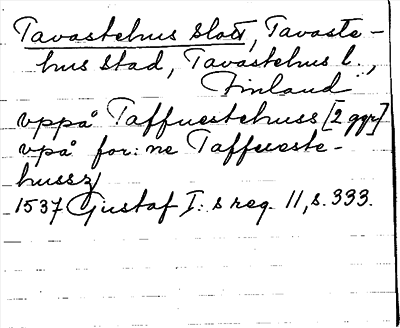 Tavastehus slott, Tavaste-
hus stad, Tavastehus l.,
Finland
vppå Taffuestehuss [2 ggr]
vpå for:ne Taffueste-
hussz
1537 Gustaf I:s reg. 11, s. 333.